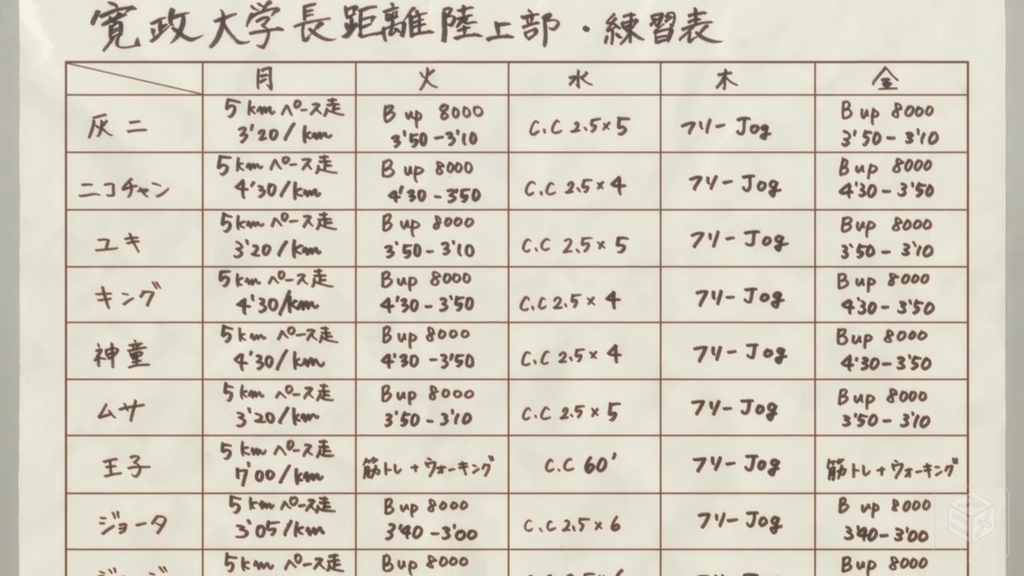 寛政大学長距離陸上部・練習表
月 火 水 木 金
灰二 5kmペース走 3'20/km B up 8000 3'50-3'10 C.C 2.5×5 フリーJog B up 8000 3'50-3'10
ニコチャン 5kmペース走 4'30/km B up 8000 4'30-3'50 C.C 2.5×4 フリーJog B up 8000 4'30-3'50
ユキ 5kmペース走 3'20/km B up 8000 3'50-3'10 C.C 2.5×5 フリーJog B up 8000 3'50-3'10
キング 5kmペース走 4'30/km B up 8000 4'30-3'50 C.C 2.5×4 フリーJog B up 8000 4'30-3'50
神童 5kmペース走 4'30/km B up 8000 4'30-3'50 C.C 2.5×4 フリーJog B up 8000 4'30-3'50
ムサ 5kmペース走 3'20/km B up 8000 3'50-3'10 C.C 2.5×5 フリーJog B up 8000 3'50-3'10
王子 5kmペース走 7'00/km 筋トレ+ウォーキング C.C 60' フリーJog 筋トレ+ウォーキング
ジョータ 5kmペース走 3'05/km B up 8000 3'40-3'00 C.C 2.5×6 フリーJog B up 8000 3'40-3'00
5kmペース走 B up 8000 B up 8000